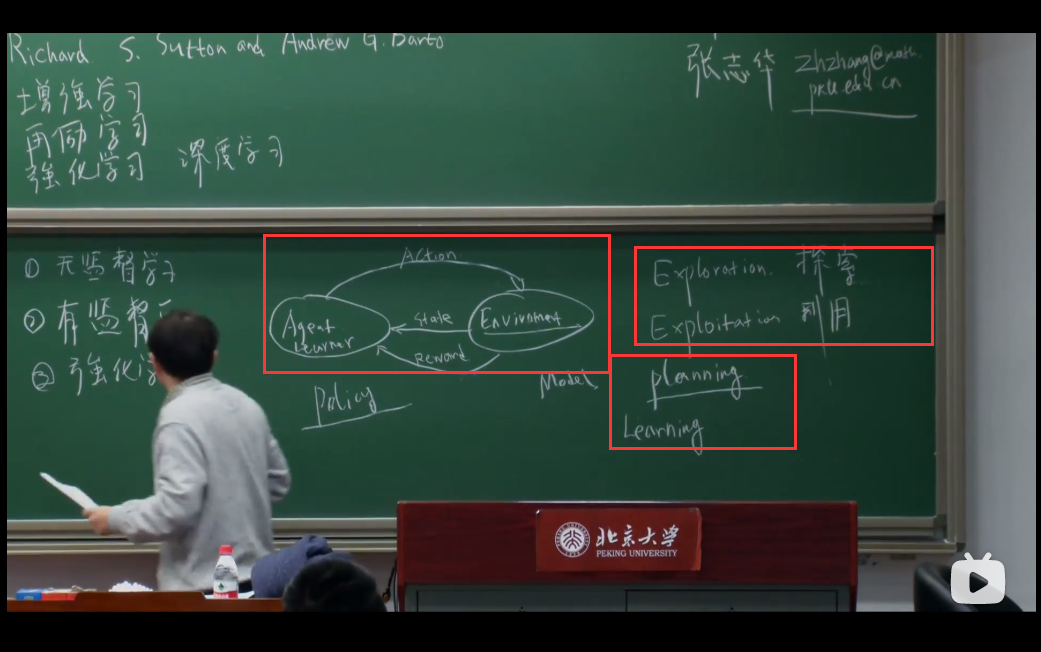 Richard S. Sutton and Andrew G. Barto
张志华
zhzhang@math.
pku.edu.cn
增强学习
再励学习
强化学习
深度学习
① 无监督学习
② 有监督
③ 强化学
Action
Agent
Learner
State
Reward
Enviroment
Policy
Model
Exploration. 探索
Exploitation 利用
planning
Learning
北京大学
PEKING UNIVERSITY